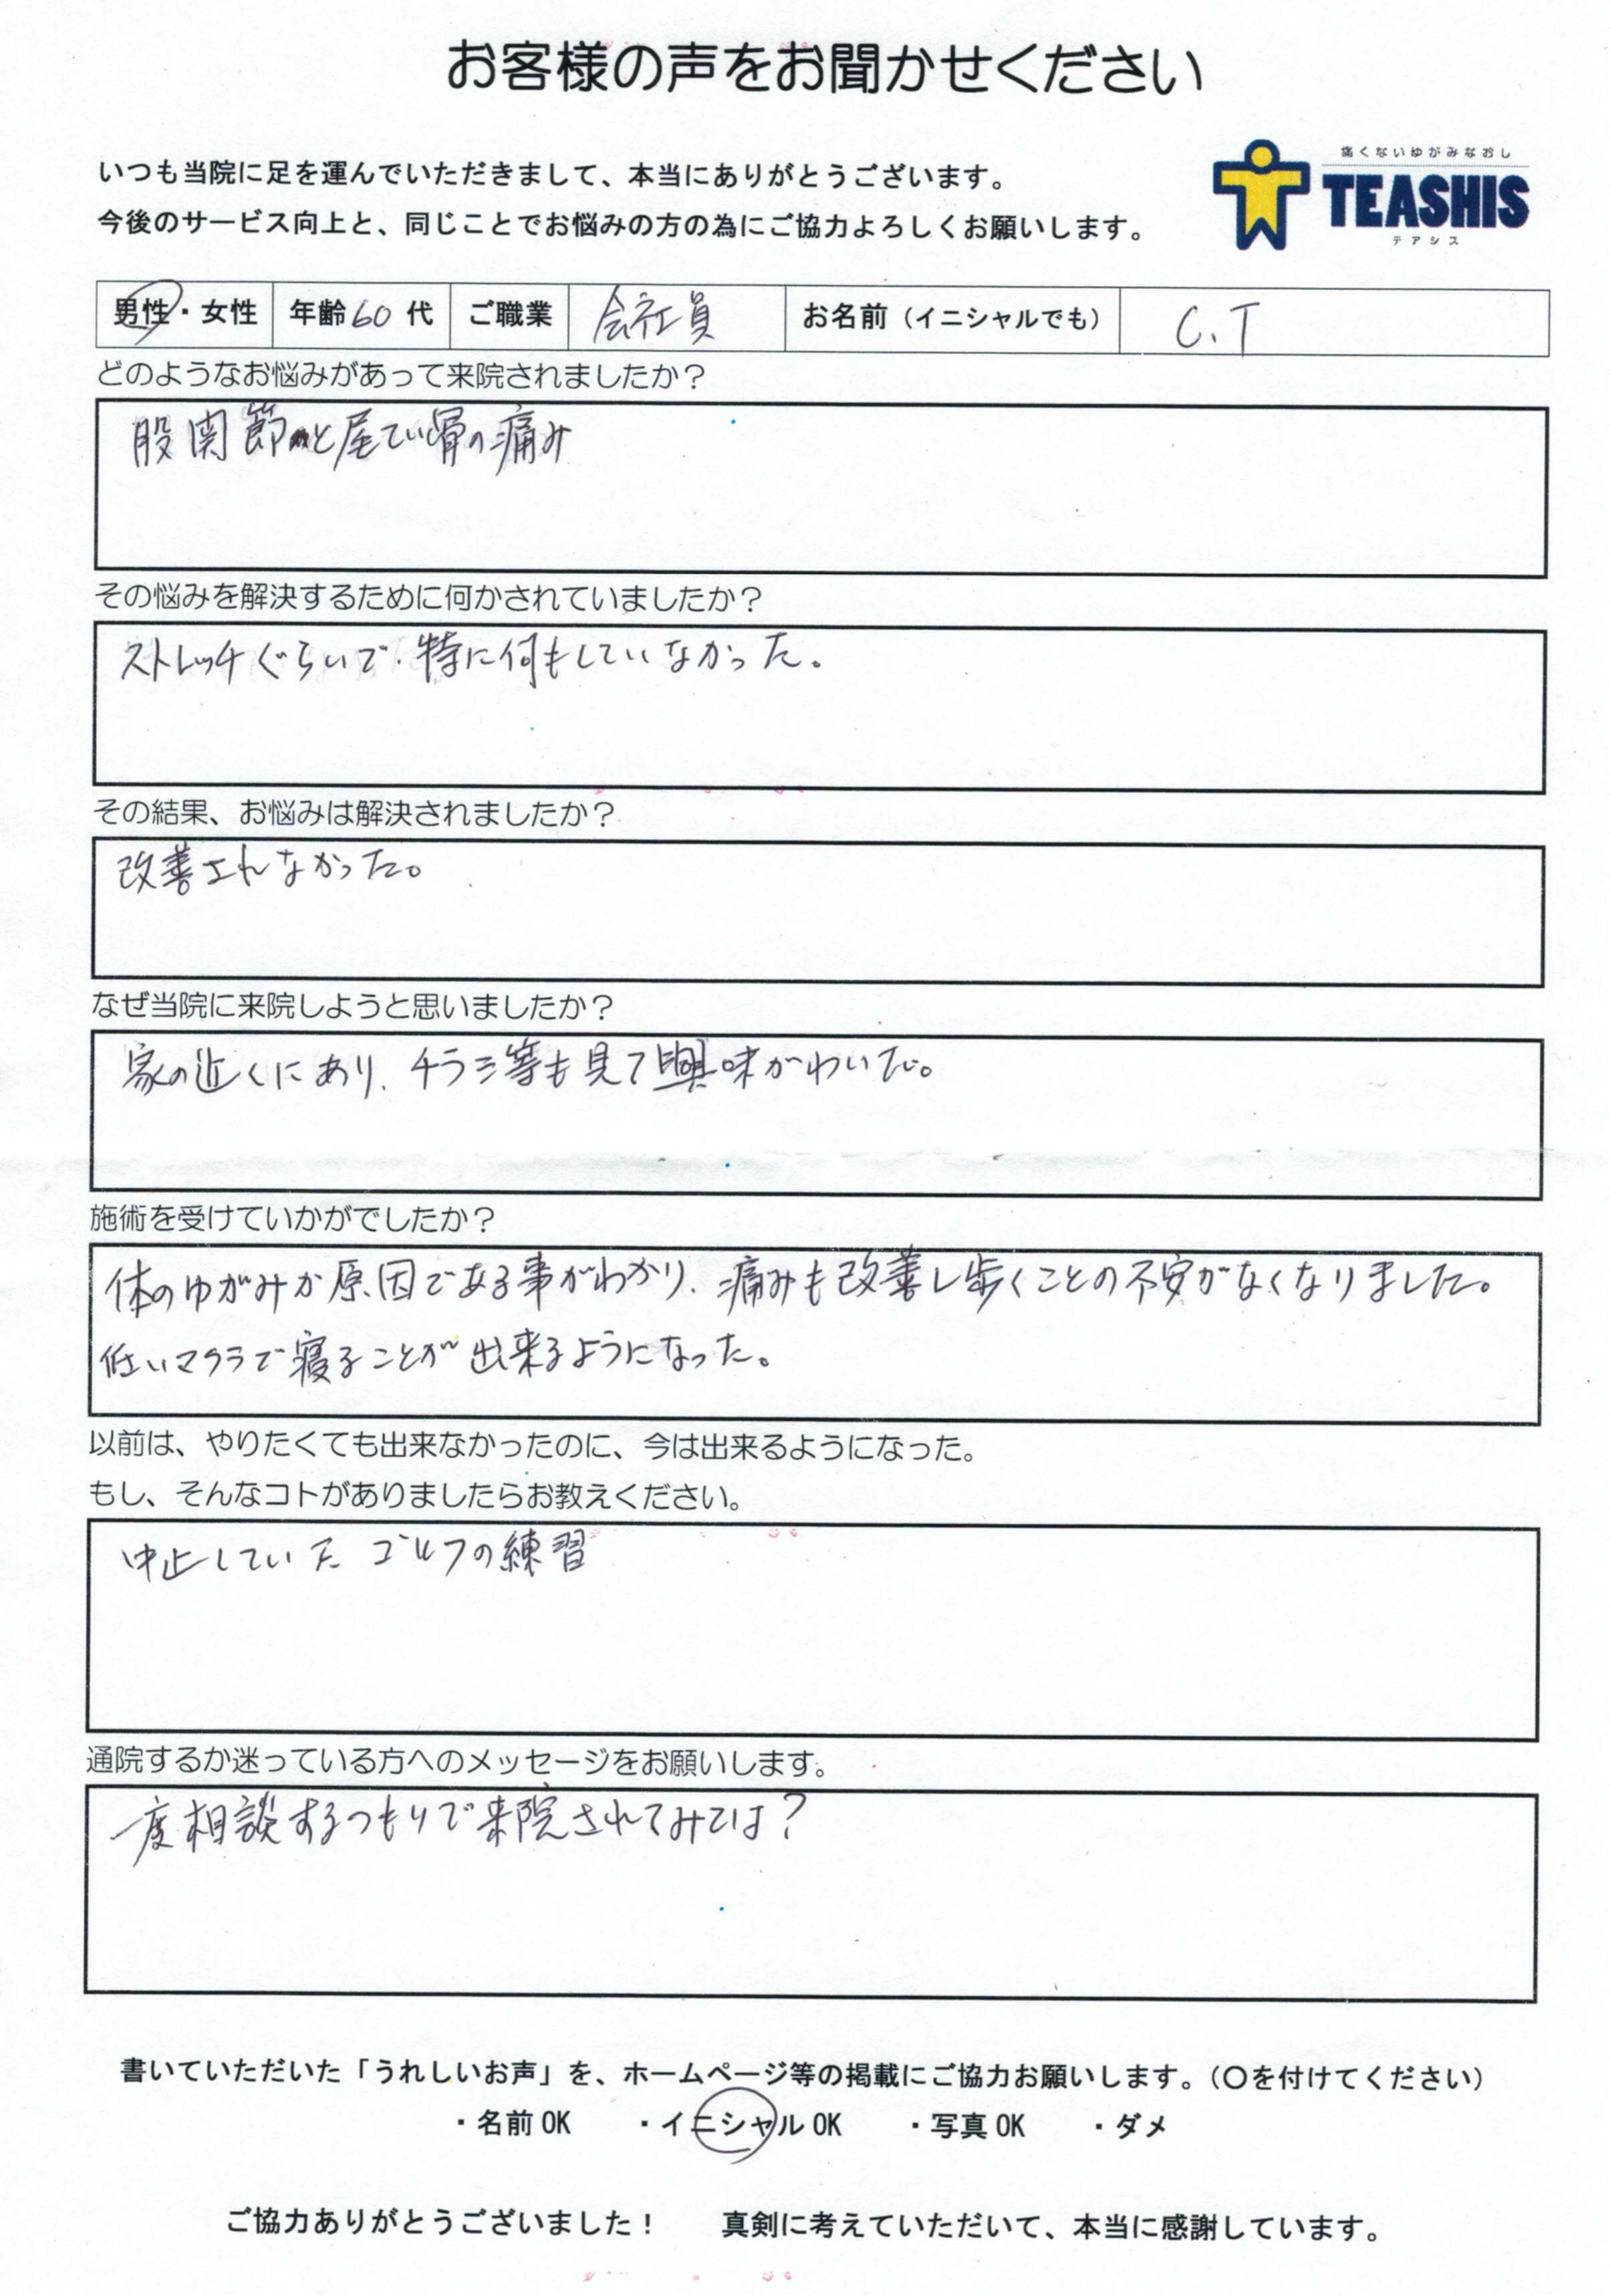 お客様の声をお聞かせください
いつも当院に足を運んでいただきまして、本当にありがとうございます。
今後のサービス向上と、同じことでお悩みの方の為にご協力よろしくお願いします。
痛くないゆがみなおし
TEASHIS
テアシス
男性・女性 年齢60代 ご職業 会社員 お名前（イニシャルでも） C.T
どのようなお悩みがあって来院されましたか？
股関節と尾てい骨の痛み
その悩みを解決するために何かされていましたか？
ストレッチぐらいで、特に何もしていなかった。
その結果、お悩みは解決されましたか？
改善されなかった。
なぜ当院に来院しようと思いましたか？
家の近くにあり、チラシ等も見て興味がわいた。
施術を受けていかがでしたか？
体のゆがみが原因である事がわかり、痛みも改善し歩くことの不安がなくなりました。
低いマクラで寝ることが出来るようになった。
以前は、やりたくても出来なかったのに、今は出来るようになった。
もし、そんなコトがありましたらお教えください。
中止していた ゴルフの練習
通院するか迷っている方へのメッセージをお願いします。
一度相談するつもりで来院されてみては？
書いていただいた「うれしいお声」を、ホームページ等の掲載にご協力お願いします。（〇を付けてください）
・名前OK ・イニシャルOK ・写真OK ・ダメ
ご協力ありがとうございました！ 真剣に考えていただいて、本当に感謝しています。